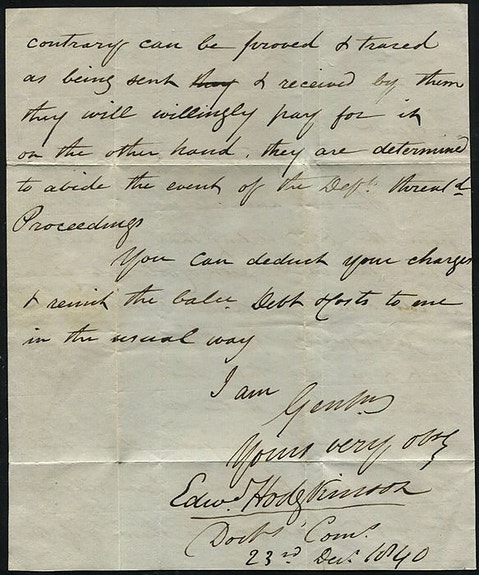 contrary can be proved & traced
as being sent they & received by them
they will willingly pay for it
on the other hand, they are determined
to abide the event of the Depts threatd
Proceedings
You can deduct your charges
& remit the balce Debt & Costs to me
in the usual way
I am
Gentn
Yours very oby
Edwd Hodgkinson
Doctrs Coms
23rd Decr 1840